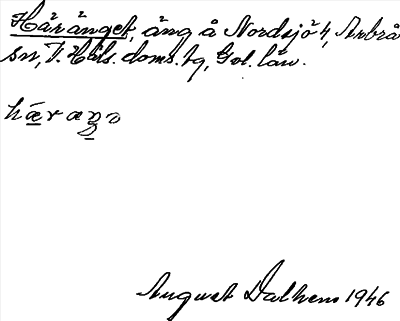 Häränget, äng å Nordsjö 4, Arbrå
sn, V. Häls. doms. tg, Gol. län.
hæraŋə
August Dalhem 1946